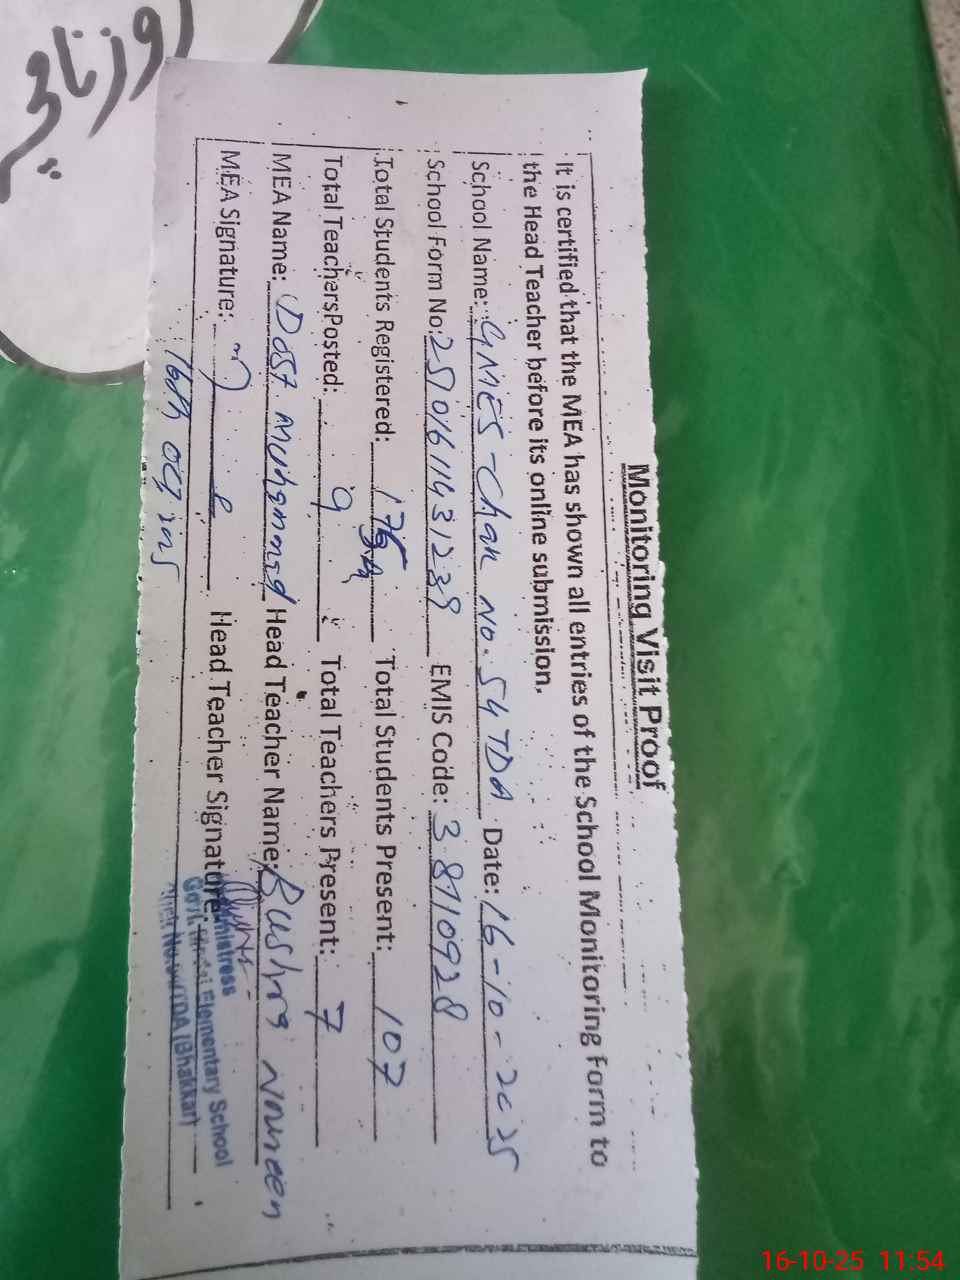 روزنامچہ
Monitoring Visit Proof
It is certified that the MEA has shown all entries of the School Monitoring Form to
the Head Teacher before its online submission.
School Name: GMES Chak No. 54 TDA Date: 16-10-2025
School Form No: EMIS Code: 38710928
Total Students Registered: Total Students Present: 107
Total Teachers Posted: 9 Total Teachers Present: 7
MEA Name: Dost Muhammad Head Teacher Name: Bushra Noureen
MEA Signature: Head Teacher Signature:
16th Oct
Govt. Model Elementary School
TDA (Bhakkar)
16-10-25 11:54